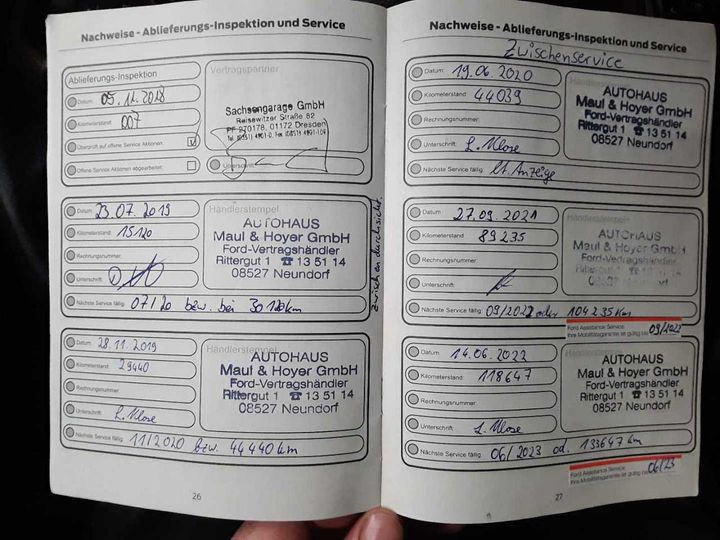 Nachweise - Ablieferungs-Inspektion und Service
Ablieferungs-Inspektion
Datum: 05.11.2018
Kilometerstand: 007
Überprüft auf offene Service Aktionen:
Offene Service Aktionen abgearbeitet:
Vertragspartner
Sachsengarage GmbH
Reisewitzer Straße 82
PF 270178, 01172 Dresden
Unterschrift:
Datum: 23.07.2019
Kilometerstand: 15120
Rechnungsnummer:
Unterschrift:
Nächste Service fällig: 07/20 bzw. bei 30120km
Händlerstempel
AUTOHAUS
Maul & Hoyer GmbH
Ford-Vertragshändler
Rittergut 1 ☎ 13 51 14
08527 Neundorf
Zwischendurchsicht.
Datum: 28.11.2019
Kilometerstand: 29440
Rechnungsnummer:
Unterschrift: L. Klose
Nächste Service fällig: 11/2020 bzw. 44440km
AUTOHAUS
Maul & Hoyer GmbH
Ford-Vertragshändler
Rittergut 1 ☎ 13 51 14
08527 Neundorf
26
Nachweise - Ablieferungs-Inspektion und Service
Zwischenservice
Datum: 19.06.2020
Kilometerstand: 44039
Rechnungsnummer:
Unterschrift: L. Klose
Nächste Service fällig: lt. Anzeige
AUTOHAUS
Maul & Hoyer GmbH
Ford-Vertragshändler
Rittergut 1 ☎ 13 51 14
08527 Neundorf
Datum: 27.09.2021
Kilometerstand: 89235
Rechnungsnummer:
Unterschrift:
Nächste Service fällig: 09/2022 oder 104235km
Händlerstempel
AUTOHAUS
Maul & Hoyer GmbH
Ford-Vertragshändler
Ford Assistance Service
Ihre Mobilitätsgarantie ist gültig bis 09/2022
Datum: 14.06.2022
Kilometerstand: 118647
Rechnungsnummer:
Unterschrift: L. Klose
Nächste Service fällig: 06/2023 od. 133647km
AUTOHAUS
Maul & Hoyer GmbH
Ford-Vertragshändler
Rittergut 1 ☎ 13 51 14
08527 Neundorf
Ford Assistance Service
Ihre Mobilitätsgarantie ist gültig bis 06/23
27